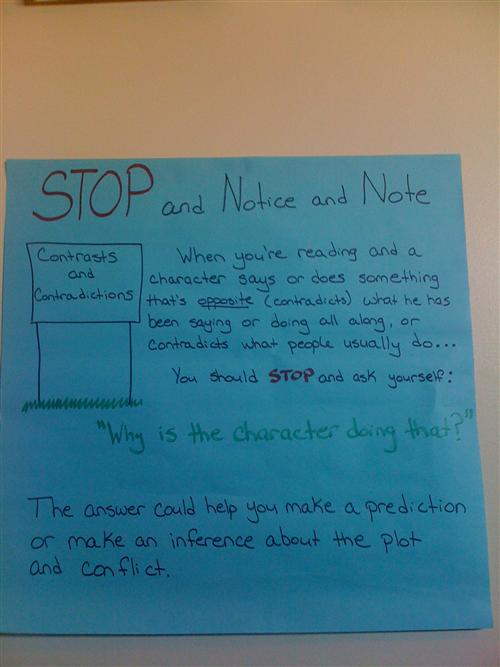 STOP and Notice and Note
Contrasts
and
Contradictions
When you're reading and a
character says or does something
that's opposite (contradicts) what he has
been saying or doing all along, or
contradicts what people usually do...
You should STOP and ask yourself:
"Why is the character doing that?"
The answer could help you make a prediction
or make an inference about the plot
and conflict.